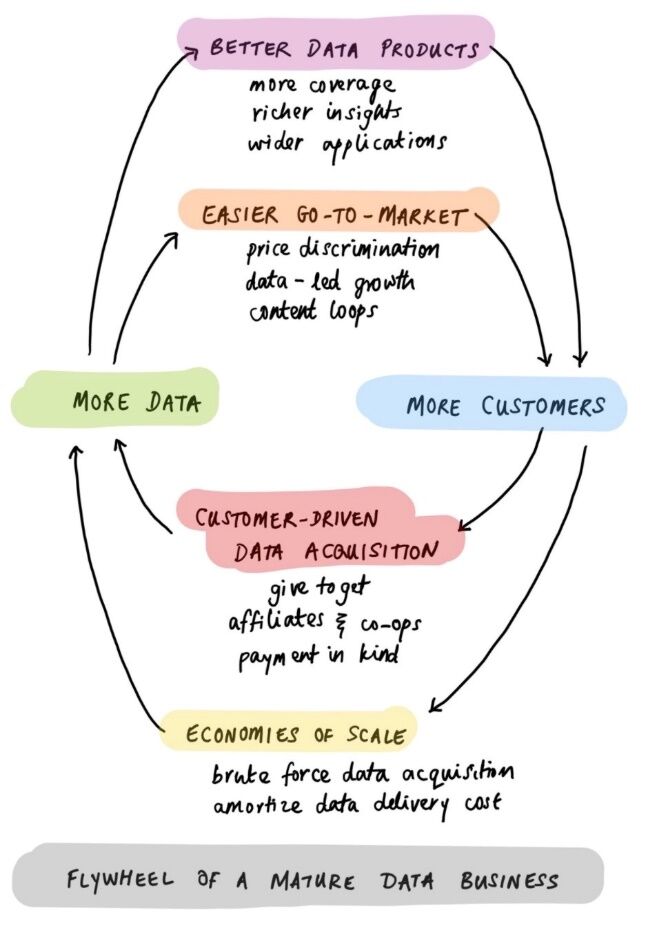 BETTER DATA PRODUCTS
more coverage
richer insights
wider applications
EASIER GO-TO-MARKET
price discrimination
data-led growth
content loops
MORE DATA
MORE CUSTOMERS
CUSTOMER-DRIVEN
DATA ACQUISITION
give to get
affiliates & co-ops
payment in kind
ECONOMIES OF SCALE
brute force data acquisition
amortize data delivery cost
FLYWHEEL OF A MATURE DATA BUSINESS